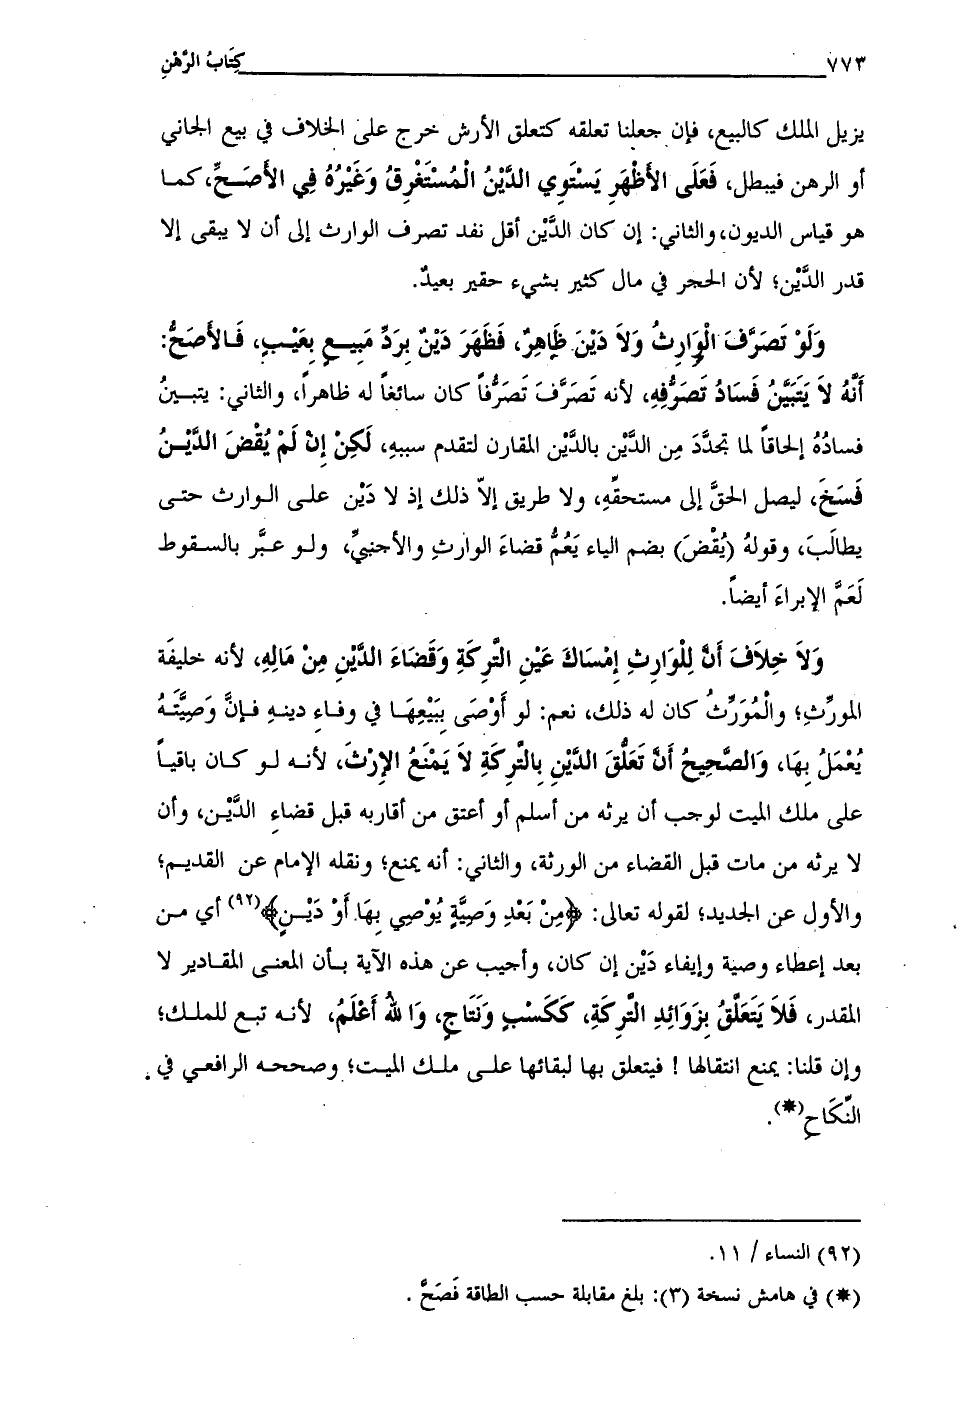 ٧٧٣ كِتَابُ الرَّهْنِ
يزيل الملك كالبيع، فإن جعلنا تعلقه كتعلق الأرش خرج على الخلاف في بيع الجاني
أو الرهن فيبطل، فَعَلَى الأَظْهَرِ يَسْتَوِي الدَّيْنُ الْمُسْتَغْرِقُ وَغَيْرُهُ فِي الأَصَحِّ، كما
هو قياس الديون، والثاني: إن كان الدَّيْن أقل نفد تصرف الوارث إلى أن لا يبقى إلا
قدر الدَّيْن؛ لأن الحجر في مال كثير بشيء حقير بعيدٌ.
وَلَوْ تَصَرَّفَ الْوَارِثُ وَلاَ دَيْنَ ظَاهِرٌ، فَظَهَرَ دَيْنٌ بِرَدِّ مَبِيعٍ بِعَيْبٍ، فَالأَصَحُّ:
أَنَّهُ لاَ يَتَبَيَّنُ فَسَادُ تَصَرُّفِهِ، لأنه تَصَرَّفَ تَصَرُّفاً كان سائغاً له ظاهراً، والثاني: يتبينُ
فسادُهُ إلحاقاً لما تجدَّدَ مِن الدَّيْن بالدَّيْن المقارن لتقدم سببهِ، لَكِنْ إِنْ لَمْ يُقْضَ الدَّيْنُ
فَسَخَ، ليصل الحقَّ إلى مستحقِّهِ، ولا طريق إلاّ ذلك إذ لا دَيْن على الوارث حتى
يطالَبَ، وقولهُ (يُقْضَ) بضم الياء يَعُمُّ قضاءَ الوارثِ والأجنبيِّ، ولو عبَّر بالسقوط
لَعَمَّ الإبراءَ أيضاً.
وَلاَ خِلاَفَ أَنَّ لِلْوَارِثِ إِمْسَاكَ عَيْنِ التَّرِكَةِ وَقَضَاءَ الدَّيْنِ مِنْ مَالِهِ، لأنه خليفَة
المورِّثِ؛ والْمُوَرِّثُ كان له ذلك، نعم: لو أَوْصَى بِبَيْعِهَا في وفاء دينهِ فإنَّ وَصِيَّتَهُ
يُعْمَلُ بِهَا، وَالصَّحِيحُ أَنَّ تَعَلُّقَ الدَّيْنِ بِالتَّرِكَةِ لاَ يَمْنَعُ الإِرْثَ، لأنه لو كان باقياً
على ملك الميت لوجب أن يرثه من أسلم أو أعتق من أقاربه قبل قضاء الدَّيْن، وأن
لا يرثه من مات قبل القضاء من الورثة، والثاني: أنه يمنع؛ ونقله الإمام عن القديم؛
والأول عن الجديد؛ لقوله تعالى: ﴿مِنْ بَعْدِ وَصِيَّةٍ يُوْصِي بِهَا أَوْ دَيْنٍ﴾(٩٢) أي من
بعد إعطاء وصية وإيفاء دَيْن إن كان، وأجيب عن هذه الآية بأن المعنى المقادير لا
المقدر، فَلاَ يَتَعَلَّقُ بِزَوَائِدِ التَّرِكَةِ، كَكَسْبٍ وَنَتَاجٍ، وَاللهُ أَعْلَمُ، لأنه تبع للملك؛
وإن قلنا: يمنع انتقالها ! فيتعلق بها لبقائها على ملك الميت؛ وصححه الرافعي في
النِّكَاحِ(*).
(٩٢) النساء / ١١.
(*) في هامش نسخة (٣): بلغ مقابلة حسب الطاقة فَصَحَّ .